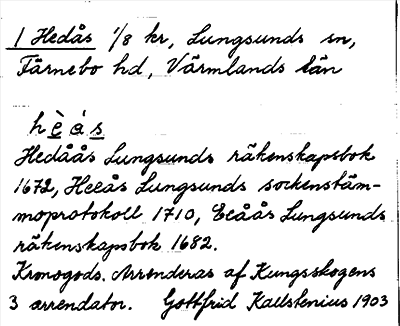 1 Hedås 1/8 kr, Lungsunds sn,
Färnebo hd, Värmlands län
hè̱ á s̱
Hedåås Lungsunds räkenskapsbok
1672, Heeås Lungsunds sockenstäm-
moprotokoll 1710, Eeåås Lungsunds
räkenskapsbok 1682.
Kronogods. Arrenderas af Kungsskogens
3 arrendator. Gottfrid Kallstenius 1903